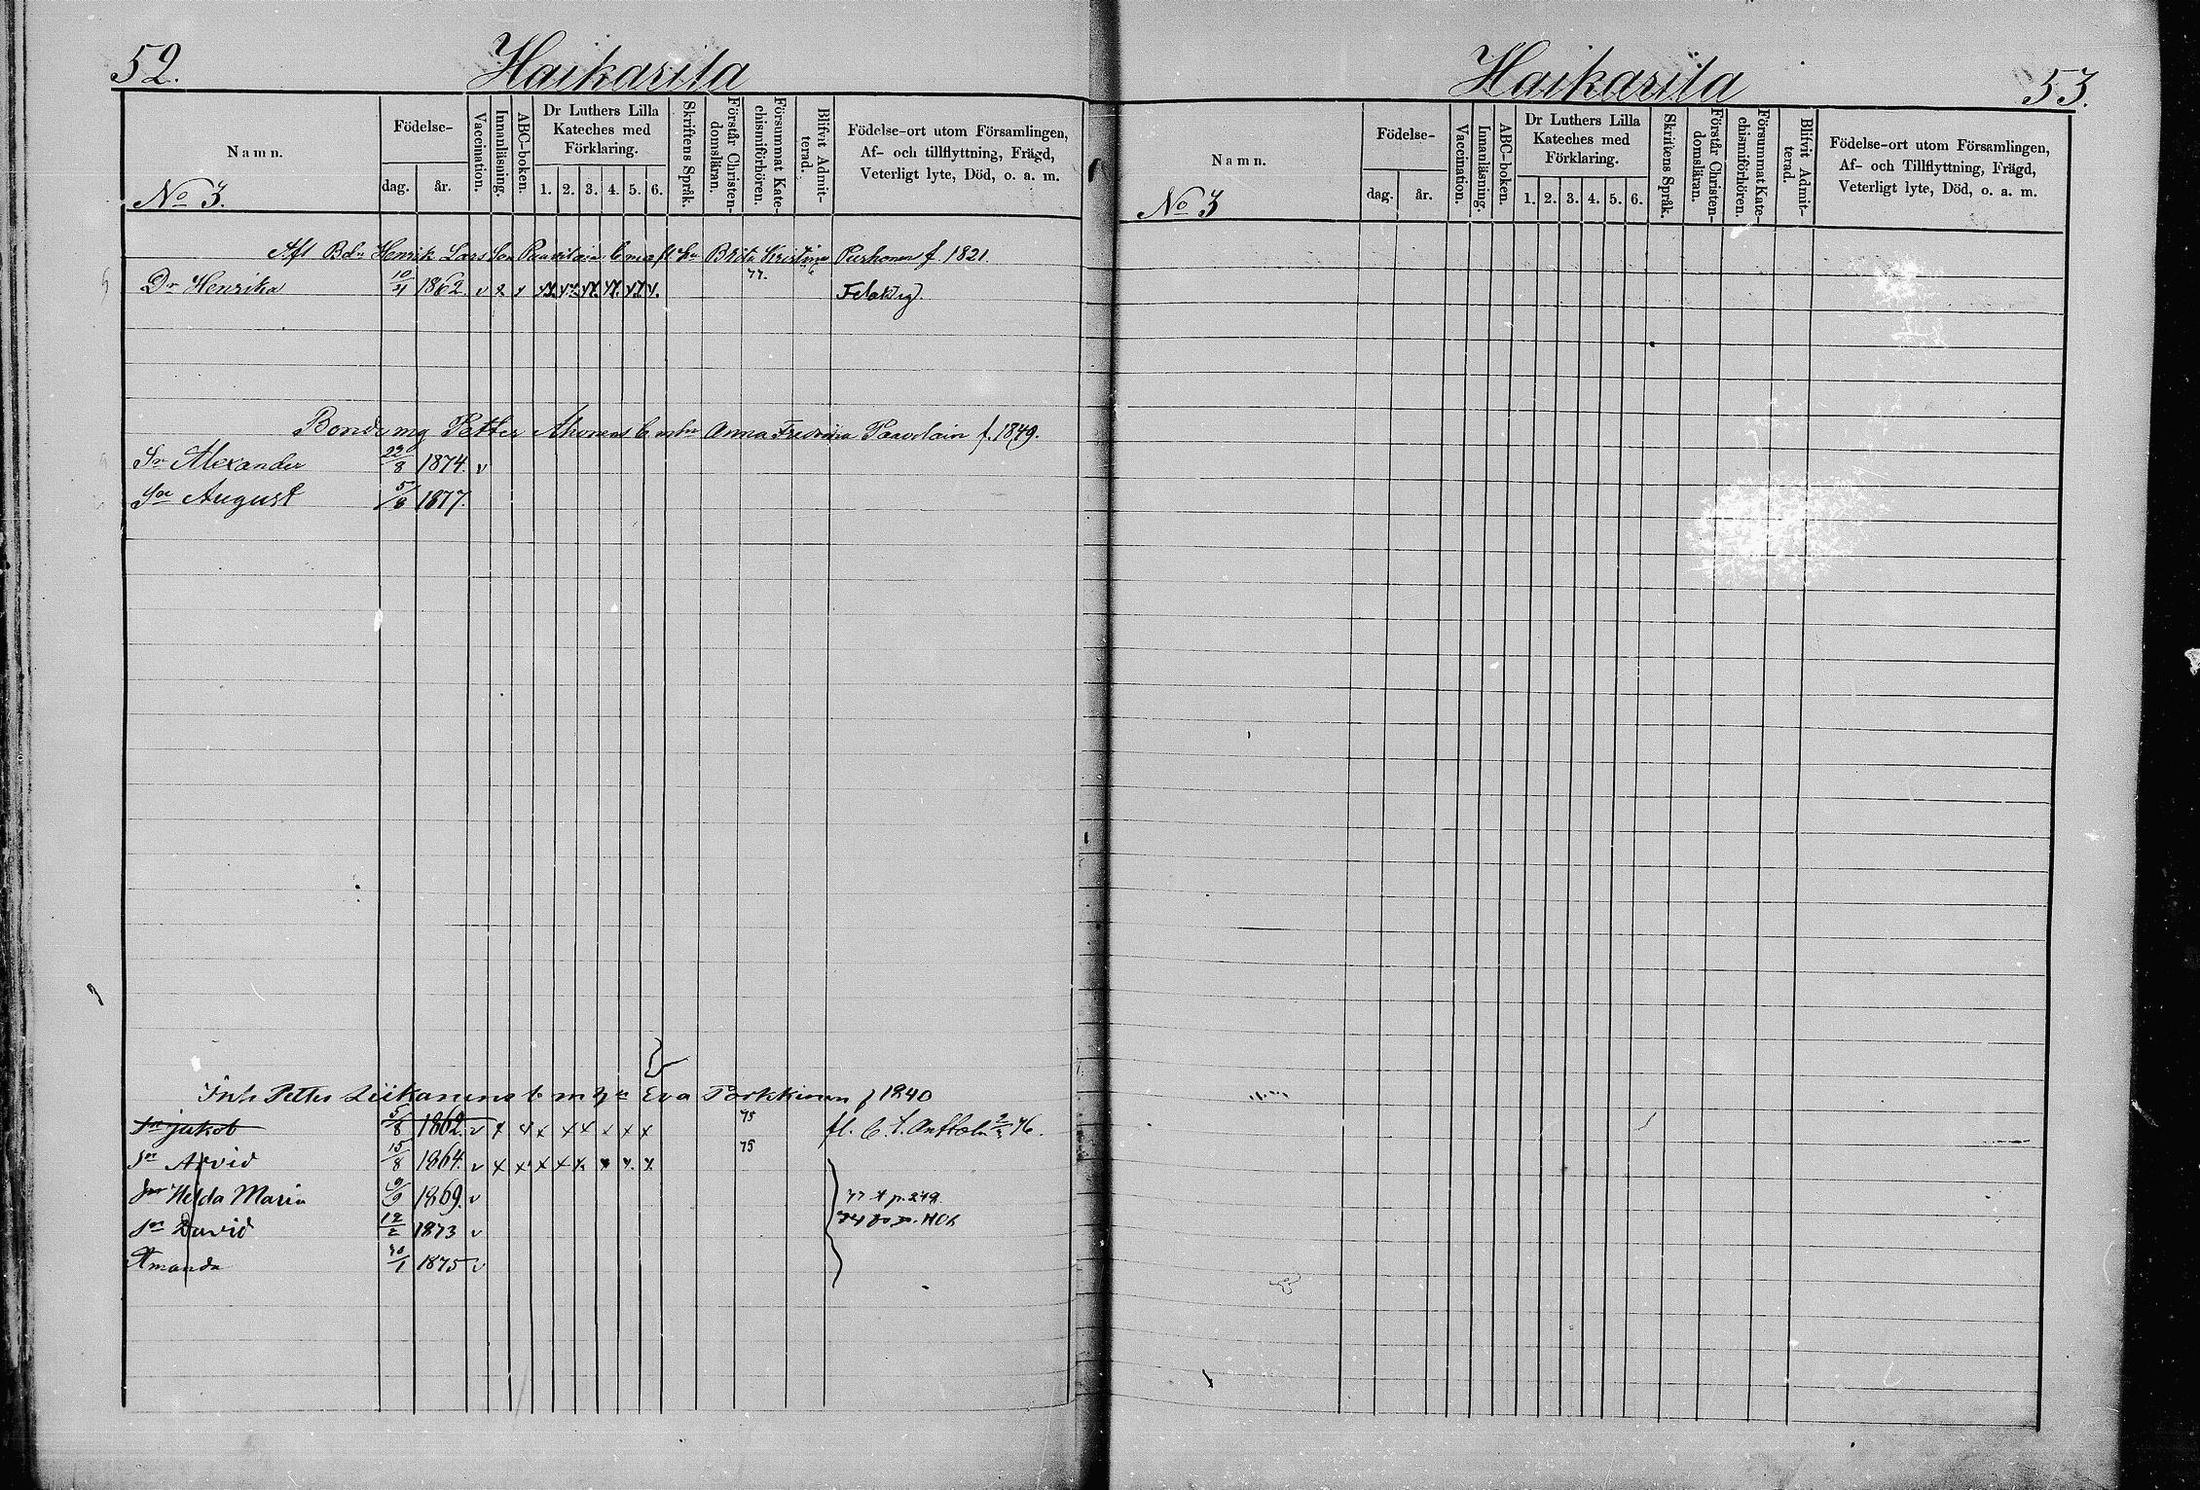 52.
Haikarila
Namn.
Födelse-
dag.
år.
Vaccination.
Innanläsning.
ABC-boken.
Dr Luthers Lilla
Kateches med
Förklaring.
1. 2. 3. 4. 5. 6.
Skriftens Språk.
Förstår Christen-
domsläran.
Försummat Kate-
chismiförhören.
Blifvit Admit-
terad.
Födelse-ort utom Församlingen,
Af- och tillflyttning, Frägd,
Veterligt lyte, Död, o. a. m.
No 3.
Aft Bdn Henrik Lars Son Brita Kristina f. 1821.
Dr Henrika 10/4 1862. v 77.
Petter Ahonens Anna f. 1849.
Sn Alexander 22/8 1874. v
Sn August 5/8 1877.
Inh Petter Liikanens b m hu Eva Porkkinen f 1840
Sn jakob 5/8 1862. v x x x x x x x x 75 fl. 76.
Sn Arvid 15/8 1864. v x x x x x x x x 75
Helda Maria 9/9 1869. v
Sn David 12/2 1873 v
Amanda 1875 v
Haikarila
53.
Namn.
Födelse-
dag.
år.
Vaccination.
Innanläsning.
ABC-boken.
Dr Luthers Lilla
Kateches med
Förklaring.
1. 2. 3. 4. 5. 6.
Skriftens Språk.
Förstår Christen-
domsläran.
Försummat Kate-
chismiförhören.
Blifvit Admit-
terad.
Födelse-ort utom Församlingen,
Af- och Tillflyttning, Frägd,
Veterligt lyte, Död, o. a. m.
No 3